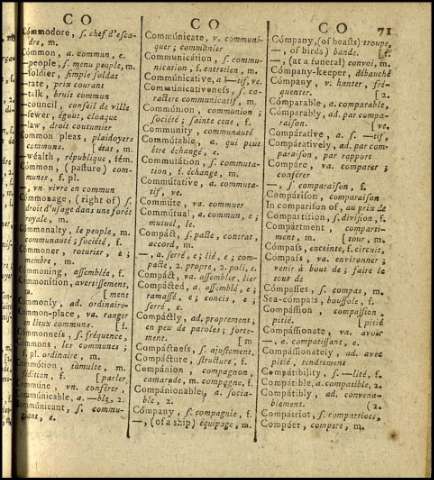 CO
CO
CO
71
Commodore, s. chef d'esca-
dre, m.
Common, a. commun, e.
—people, s. menu peuple, m.
—soldier, simple soldat
—rate, prix courant
—talk, bruit commun
—council, conseil de ville
—sewer, égout, cloaque
—law, droit coutumier
Common pleas, plaidoyers
communs. [état, m.
—wéalth, république, fém.
Cómmon, (pasture) commune, f. pl.
, vn. vivre en commun
Cómmonage, (right of) s.
droit d'usage dans une forêt
royale, m.
Commonalty, le peuple, m.
communauté; société, f.
Commoner, roturier, e;
membre, m.
Commoning, assemblée, f.
Commonition, avertissement,
[ment
Commonly, ad. ordinaire-
Common-place, va. ranger
en lieux communs. [f.
Commonness, s. fréquence,
Commons, les communes;
f. pl. ordinaire, m.
Commótion, tumulte, m.
sédition, f. [parler,
Commúne, vn. conférer,
Commúnicable, a. —ble, 2.
Commúnicant, s. commu-
Commúnicate, v. communi-
quer; communier
Communicátion, s. commu-
nication, f. entretien, m.
Commúnicative, a —tif, ve.
Commúnicativeness, s. ca-
ractere communicatif, m.
Commúnion, communion;
société; sainte cene, f.
Commúnity, communauté
Commútable, a. qui peut
être échangé, e.
Commutátion, s. commuta-
tion, f. échange, m.
Commútative, a. commuta-
tif, ve.
Commúte, va. commuer
Commútual, a. commun, e;
mutuel, le.
Compáct, s. pacte, contrat,
accord, m.
—, a. serré, e; lié, e; com-
pacte, 2. propre, 2. poli, e.
Compáct, va. assembler, lier
Compácted, a. assemblé, e;
ramassé, e; concis, e;
serré, e.
Compáctly, ad. proprement,
en peu de paroles; forte-
ment. [m.
Compáctness, s. ajustement,
Compácture, structure, f.
Compánion, compagnon,
camarade, m. compagne, f.
Compánionable, a. socia-
ble, 2.
Cómpany, s. compagnie, f.
—, (of a ship) équipage, m.
Cómpany, (of beasts) troupe,
—, of birds) bande. [f.
—, (at a funeral) convoi, m.
Cómpany-keeper, débauché
Cómpany, v. hanter, fré-
quenter. [2.
Cómparable, a. comparable,
Cómparably, ad. par compa-
raison. [ve.
Compárative, a. s. —tif,
Compáratively, ad. par com-
paraison, par rapport
Compáre, va. comparer;
conférer
—, s. comparaison, f.
Compárison, comparaison
In comparison of, au prix de
Compartítion, s. division, f.
Compártment, comparti-
ment, m. [tour, m.
Cómpass, enceinte, f. circuit,
Cómpass, va. environner;
venir à bout de; faire le
tour de
Cómpasses, s. compas, m.
Sea-compass, boussole, f.
Compássion, compassion,
pitié. [pitié
Compássionate, va. avoir
—, a. compatissant, e.
Compássionately, ad. avec
pitié, tendrement
Compatibility, s. —lité, f.
Compátible, a. compatible, 2.
Compátibly, ad. convena-
blement. [2.
Compátriot, s. compatriote,
Compéer, compere, m.